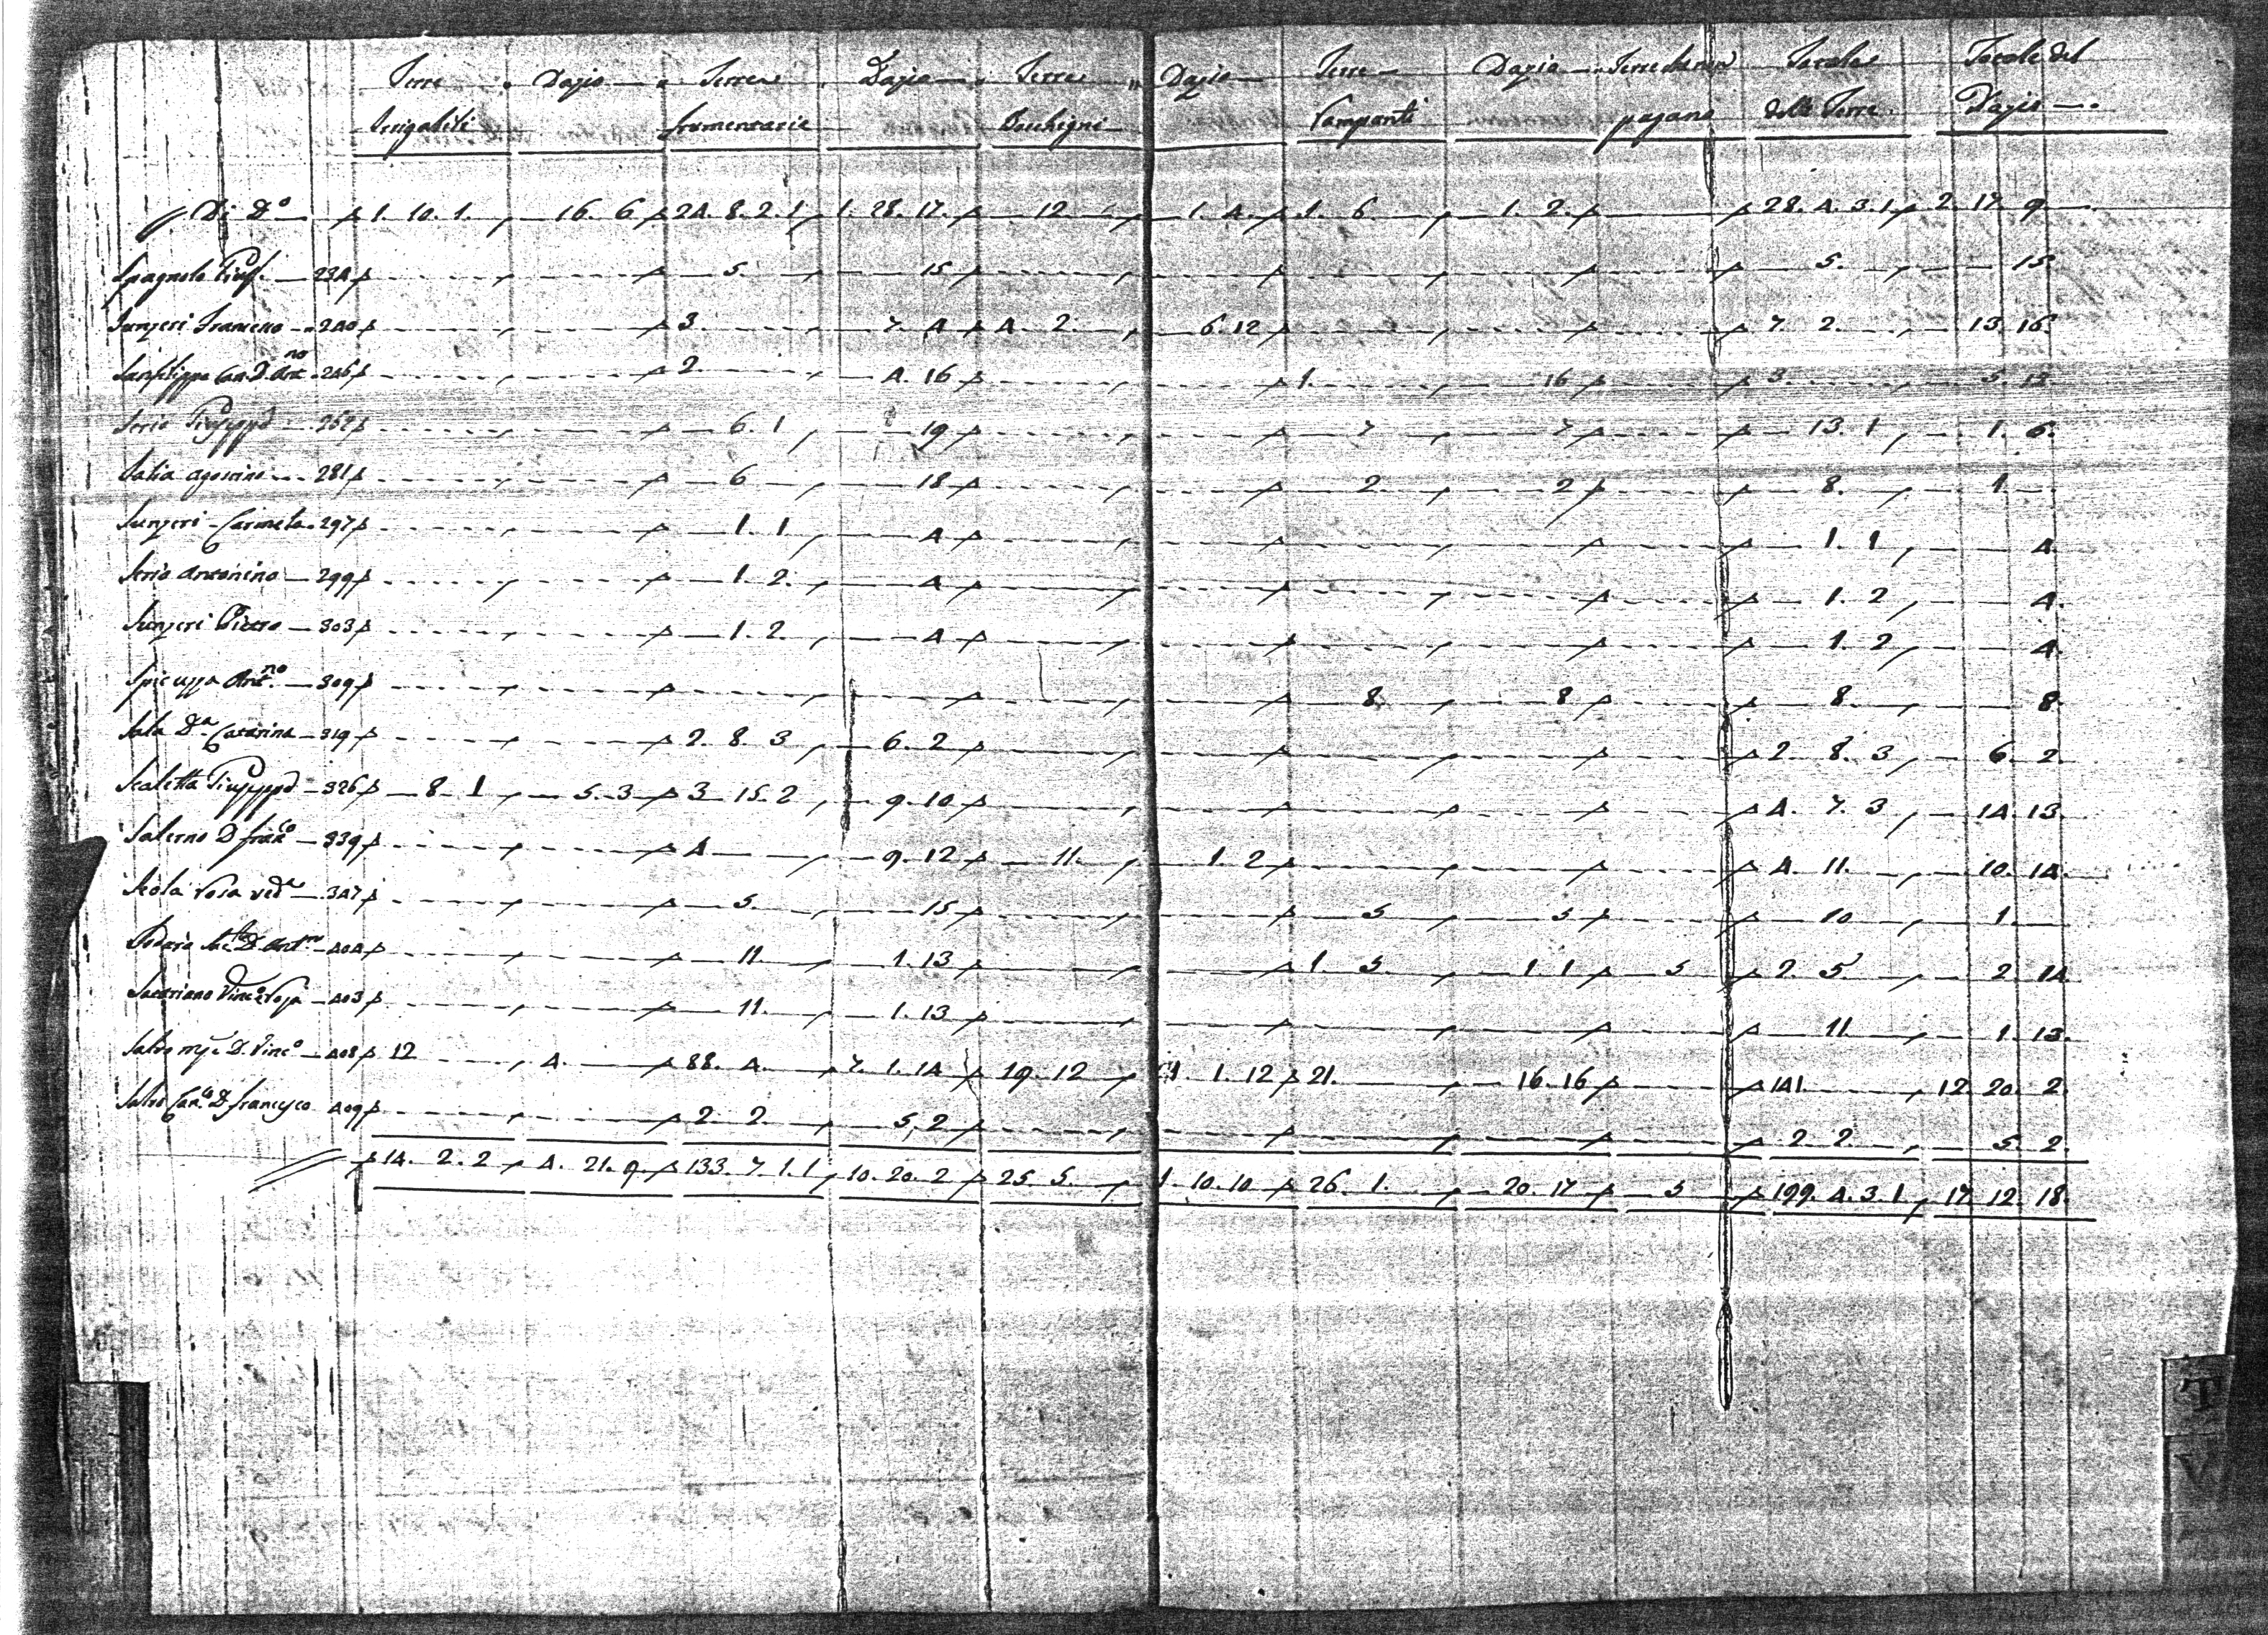 Terre Dazio Terre Dazio Terre Dazio Terre Dazio Terre che non Totale Totale del
Irrigabili frumentarie Bochigni Vampanti pagano delle Terre Dazio
Di Do 1. 10. 1. 16. 6 24. 8. 2. 1 1. 28. 17. 12 1. 4. 1. 6 1. 2. 28. 4. 3. 1 2. 17. 9
Spagnolo 234 5. 15 5. 15.
Sunzeri Francesco 240 3. 7. 4 4. 2. 6. 12 7. 2. 13. 16.
Sanfilippo Can. D. Ant.no 246 2. 4. 16 1. 16 3. 5. 12
Serio Giuseppe 262 6. 1 19 7 7 13. 1 1. 6.
Salia Agostino 281 6 18 2. 2 8. 1.
Sunzeri Carmela 297 1. 1 4 1. 1 4.
Serio Antonino 299 1. 2. 4 1. 2 4.
Sunzeri Pietro 303 1. 2. 4 1. 2 4.
Spicuzza Ant.no 309 8 8 8. 8.
Sala Da. Catarina 319 2. 8. 3 6. 2 2. 8. 3 6. 2.
Scaletta Giuseppe 326 8. 1 5. 3 3. 15. 2 9. 10 4. 7. 3 14. 13.
Salerno D. Franco 339 4 9. 12 11. 1. 2 4. 11. 10. 14.
Scola Rosa veda 347 5. 15 5 5 10 1.
D. Ant.no 404 11. 1. 13 1. 5. 1. 1 5 2. 5 2. 14.
403 11. 1. 13 11. 1. 13.
Salvo D. Vinco 408 12 4. 88. 4. 7. 1. 14 19. 12 1. 1. 12 21. 16. 16 141 12. 20. 2.
Salvo Can.o D. Francesco 409 2. 2. 5. 2 2. 2 5. 2.
14. 2. 2 4. 21. 9. 133. 7. 1. 1 10. 20. 2 25. 5. 1. 10. 10 26. 1. 20. 17 5 199. 4. 3. 1 17. 12. 18.
T
V